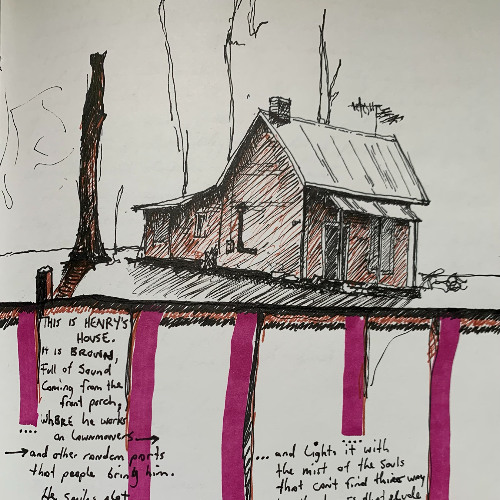 THIS IS HENRY'S
HOUSE.
It is BROWN,
Full of Sound
Coming from the
front porch,
WHERE he works
on lawnmowers
and other random parts
that people bring him.
He smiles a lot
... and lights it with
the mist of the souls
that can't find their way